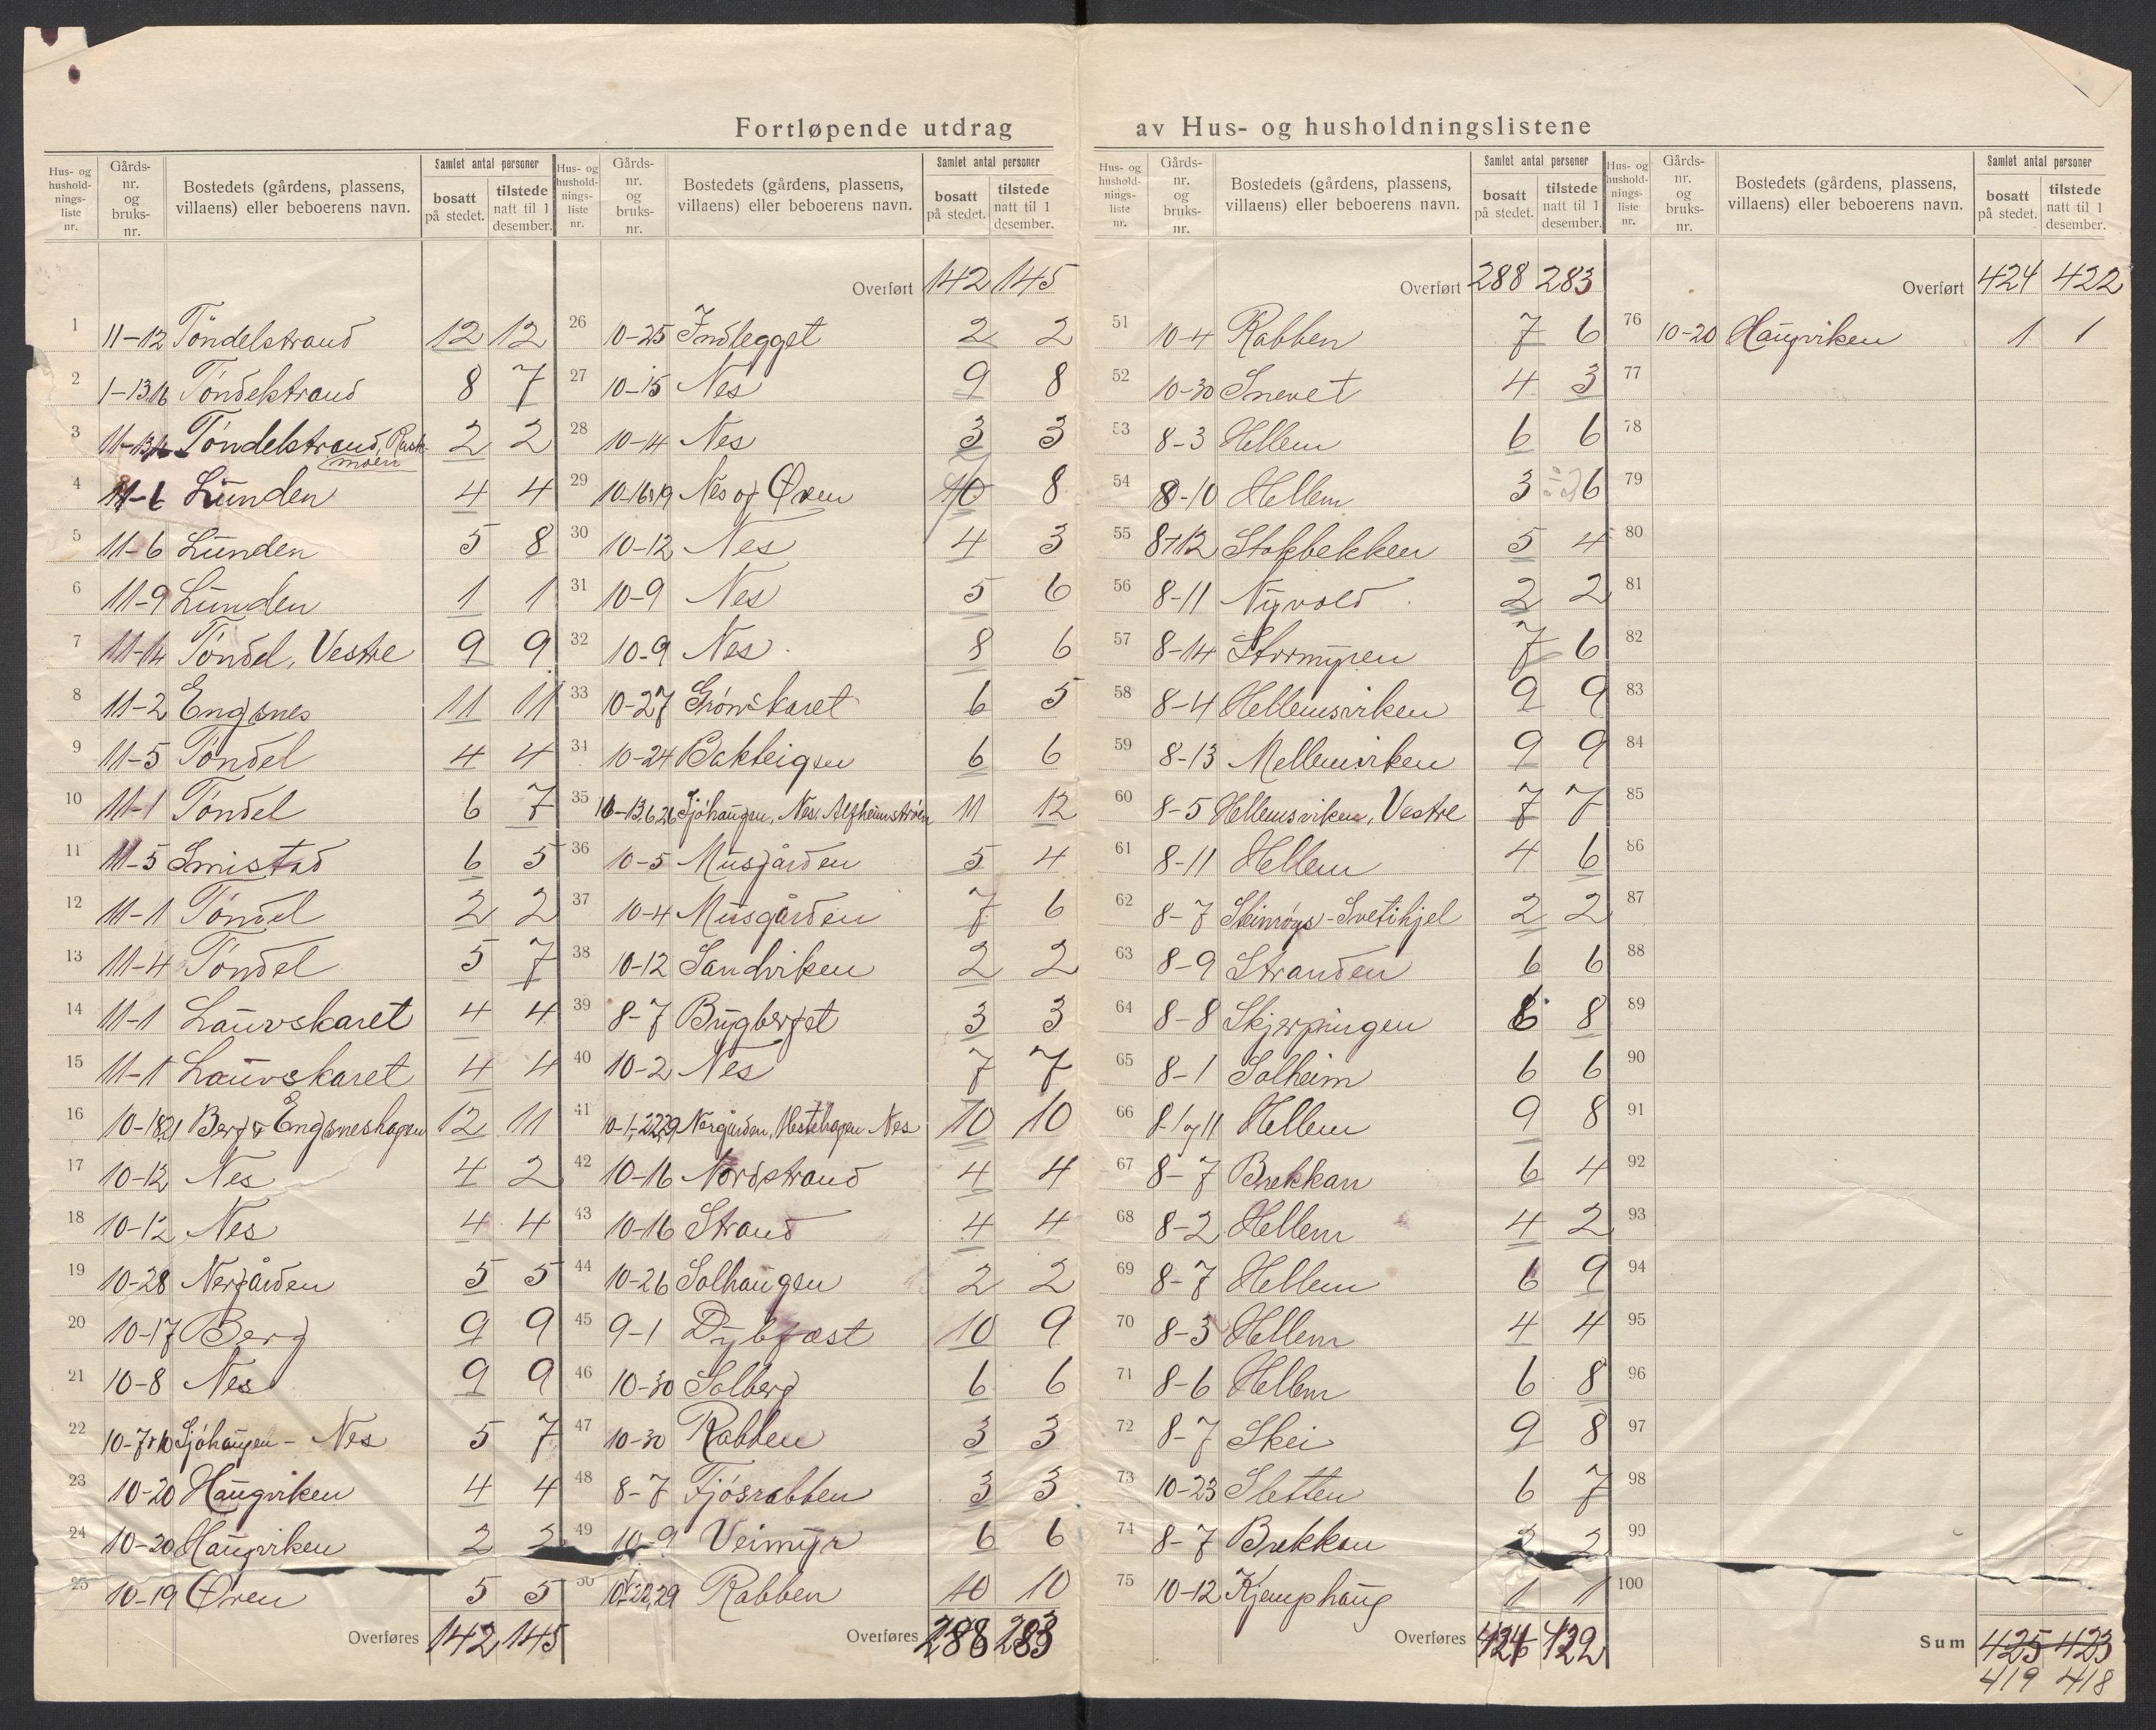 Fortløpende utdrag av Hus- og husholdningslistene
Hus- og hushold-nings-liste nr. Gårds-nr. og bruks-nr. Bostedets (gårdens, plassens, villaens) eller beboerens navn. Samlet antal personer bosatt på stedet. tilstede natt til 1 desember.
1 11-12 Töndelstrand 12 12
2 1-13,16 Töndelstrand 8 7
3 Töndelstrand, 2 2
moen
4 Lunden 4 4
5 11-6 Lunden 5 8
6 11-9 Lunden 1 1
7 11-14 Töndel, Vestre 9 9
8 11-2 Engsnes 11 11
9 11-5 Töndel 4 4
10 11-1 Töndel 6 7
11 11-5 Smistad 6 5
12 11-1 Töndel 2 2
13 11-4 Töndel 5 7
14 11-1 Lauvskaret 4 4
15 11-1 Lauvskaret 4 4
16 10-18,21 Berg & Engsneshagen 12 11
17 10-12 Nes 4 2
18 10-12 Nes 4 4
19 10-28 Nergården 5 5
20 10-17 Berg 9 9
21 10-8 Nes 9 9
22 10-7&10 Sjöhaugen - Nes 5 7
23 10-20 Haugviken 4 4
24 10-20 Haugviken 2 2
25 10-19 Øren 5 5
Overføres 142 145
Hus- og hushold-nings-liste nr. Gårds-nr. og bruks-nr. Bostedets (gårdens, plassens, villaens) eller beboerens navn. Samlet antal personer bosatt på stedet. tilstede natt til 1 desember.
Overført 142 145
26 10-25 Indlegget 2 2
27 10-15 Nes 9 8
28 10-14 Nes 3 3
29 10-16&19 Nes og Øren 10 8
30 10-12 Nes 4 3
31 10-9 Nes 5 6
32 10-9 Nes 8 6
33 10-27 Grønskaret 6 5
34 10-24 Bakteigen 6 6
35 10-13,6,26 Sjöhaugen, Nes, 11 12
36 10-5 Musgården 5 4
37 10-4 Musgården 7 6
38 10-12 Sandviken 2 2
39 8-7 Bygberget 3 3
40 10-2 Nes 7 7
41 10-1,-22,29 Nergården, Hestehagen Nes 10 10
42 10-16 Nordstrand 4 4
43 10-16 Strand 4 4
44 10-26 Solhaugen 2 2
45 9-1 Dybfest 10 9
46 10-30 Solberg 6 6
47 10-30 Rabben 3 3
48 8-7 Fjösrabben 3 3
49 10-9 Veimyr 6 6
50 Rabben 10 10
Overføres 288 283
Hus- og hushold-nings-liste nr. Gårds-nr. og bruks-nr. Bostedets (gårdens, plassens, villaens) eller beboerens navn. Samlet antal personer bosatt på stedet. tilstede natt til 1 desember.
Overført 288 283
51 10-4 Rabben 7 6
52 10-30 Snevet 4 3
53 8-3 Hellem 6 6
54 8-10 Hellem 3 6
55 8-12 Stokbekken 5 4
56 8-11 Nyvold 2 2
57 8-14 Stormyren 7 6
58 8-4 Hellemsviken 9 9
59 8-13 Mellemviken 9 9
60 8-5 Hellemsviken, Vestre 7 7
61 8-11 Hellem 4 6
62 8-7 2 2
63 8-9 Stranden 6 6
64 8-8 Skjerpingen 6 8
65 8-1 Solheim 6 6
66 8-1og11 Hellem 9 8
67 8-7 Brekkan 6 4
68 8-2 Hellem 4 2
69 8-7 Hellem 6 9
70 8-3 Hellem 4 4
71 8-6 Hellem 6 8
72 8-7 Skei 9 8
73 10-23 Sletten 6 7
74 8-7 Brekkan 2 2
75 10-12 Kjemphaug 1 1
Overføres 424 422
Hus- og hushold-nings-liste nr. Gårds-nr. og bruks-nr. Bostedets (gårdens, plassens, villaens) eller beboerens navn. Samlet antal personer bosatt på stedet. tilstede natt til 1 desember.
Overført 424 422
76 10-20 Haugviken 1 1
77
78
79
80
81
82
83
84
85
86
87
88
89
90
91
92
93
94
95
96
97
98
99
100
Sum 425 423
419 418